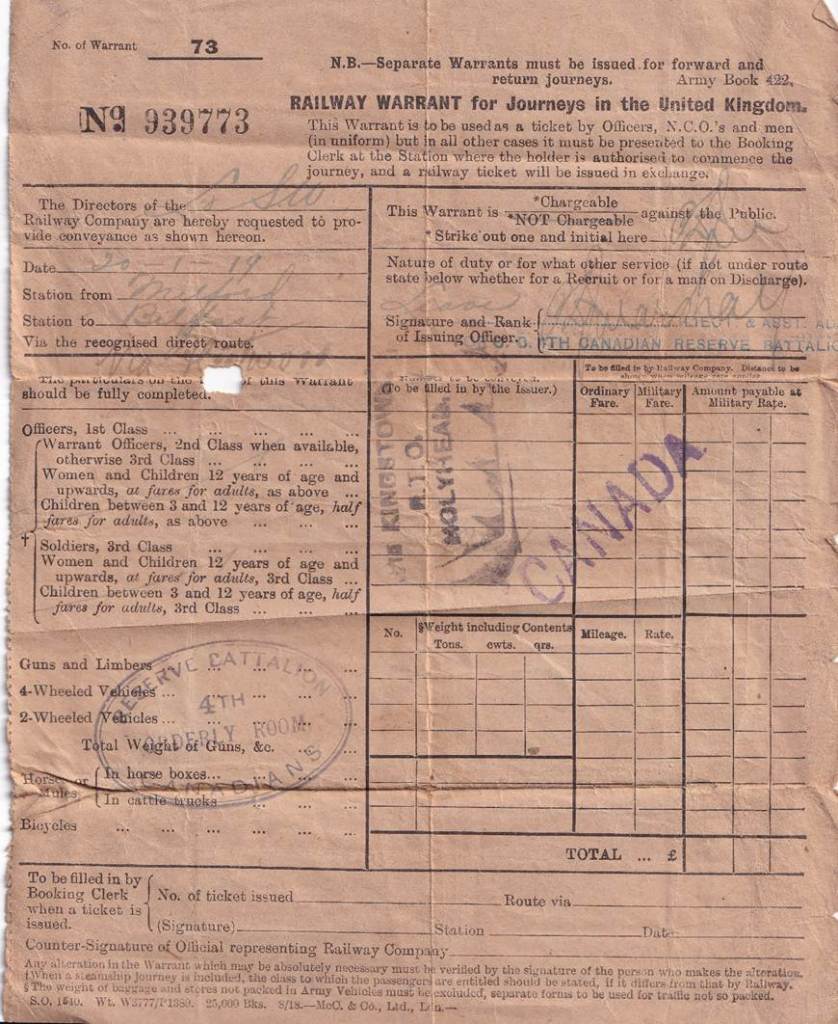 No. of Warrant 73
N.B.—Separate Warrants must be issued for forward and
return journeys. Army Book 422.
No 939773
RAILWAY WARRANT for Journeys in the United Kingdom.
This Warrant is to be used as a ticket by Officers, N.C.O.'s and men
(in uniform) but in all other cases it must be presented to the Booking
Clerk at the Station where the holder is authorised to commence the
journey, and a railway ticket will be issued in exchange.
The Directors of the
Railway Company are hereby requested to pro-
vide conveyance as shown hereon.
Date 20 - 1 - 19
Station from Milford
Station to Belfast
Via the recognised direct route.
Via Holyhead
This Warrant is *Chargeable
*NOT Chargeable against the Public.
* Strike out one and initial here
Nature of duty or for what other service (if not under route
state below whether for a Recruit or for a man on Discharge).
Leave
Signature and Rank
of Issuing Officer.
LIEUT & ASST. AD
4TH CANADIAN RESERVE BATTALIO
The particulars on the of this Warrant
should be fully completed.
(To be filled in by the Issuer.)
To be filled in by Railway Company. Distance to be
Ordinary Fare.
Military Fare.
Amount payable at Military Rate.
Officers, 1st Class ... ... ... ... ...
Warrant Officers, 2nd Class when available,
otherwise 3rd Class ... ... ... ...
Women and Children 12 years of age and
upwards, at fares for adults, as above ...
Children between 3 and 12 years of age, half
fares for adults, as above ... ... ...
† Soldiers, 3rd Class ... ... ... ...
Women and Children 12 years of age and
upwards, at fares for adults, 3rd Class ...
Children between 3 and 12 years of age, half
fares for adults, 3rd Class ... ... ...
KINGSTOWN
R.T.O.
HOLYHEAD
CANADA
No.
§Weight including Contents
Tons. cwts. qrs.
Mileage. Rate.
Guns and Limbers ... ... ... ...
4-Wheeled Vehicles ... ... ... ...
2-Wheeled Vehicles ... ... ... ...
Total Weight of Guns, &c. ... ...
Horses or Mules
In horse boxes... ... ... ...
In cattle trucks ... ... ...
Bicycles ... ... ... ... ...
RESERVE BATTALION
4TH
ORDERLY ROOM
CANADIANS
TOTAL ... £
To be filled in by
Booking Clerk
when a ticket is
issued.
No. of ticket issued Route via
(Signature) Station Date
Counter-Signature of Official representing Railway Company
Any alteration in the Warrant which may be absolutely necessary must be verified by the signature of the person who makes the alteration.
†When a steamship journey is included, the class to which the passengers are entitled should be stated, if it differs from that by Railway.
§The weight of baggage and stores not packed in Army Vehicles must be excluded, separate forms to be used for traffic not so packed.
S.O. 1540. Wt. W3777/P1380. 25,000 Bks. 8/18.—McC. & Co., Ltd., Ldn.—